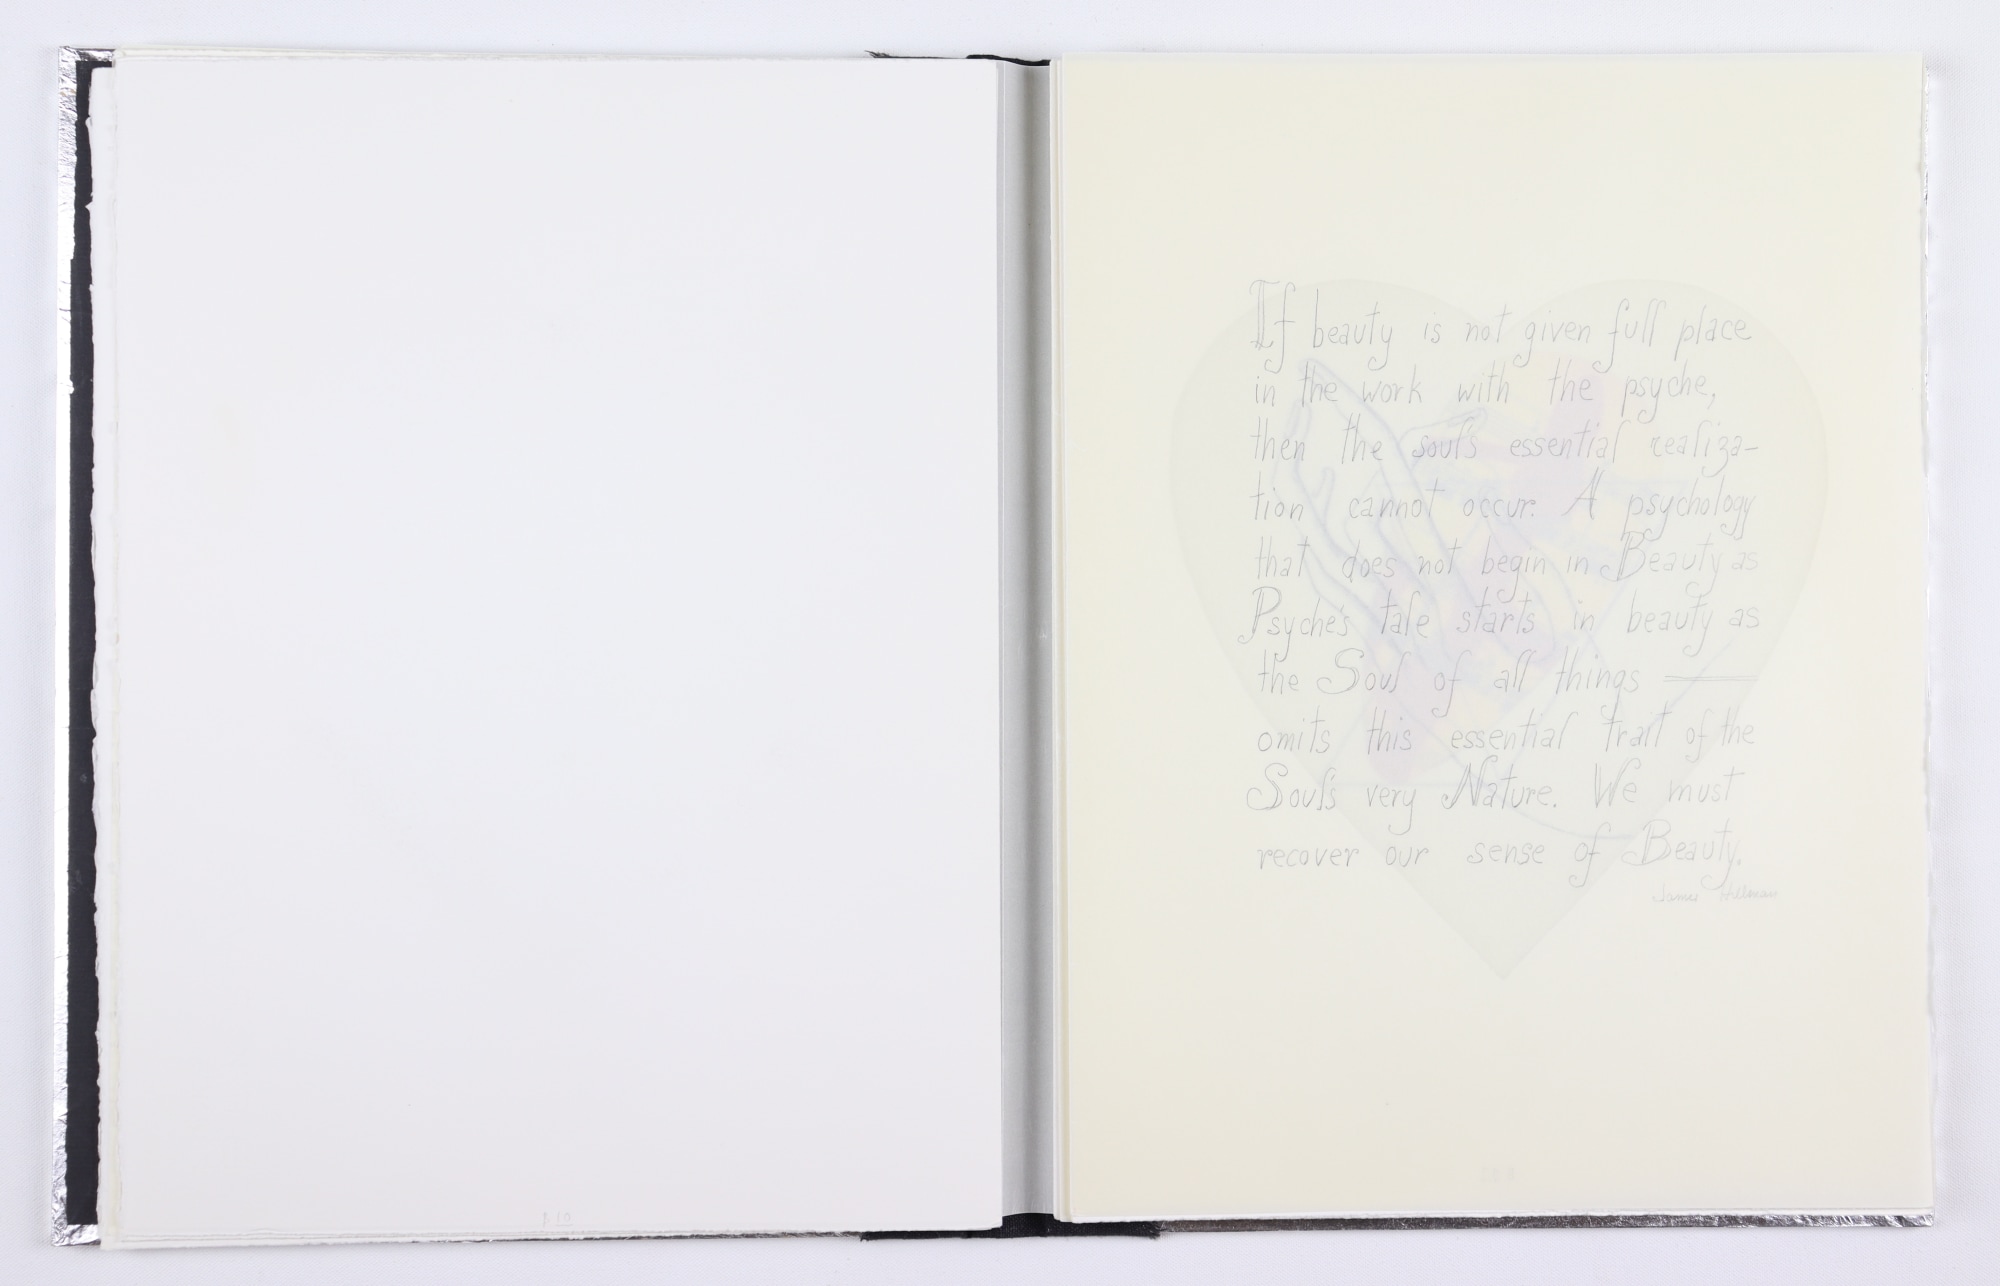 If beauty is not given full place
in the work with the psyche,
then the soul's essential realiza-
tion cannot occur. A psychology
that does not begin in Beauty as
Psyche's tale starts in beauty as
the Soul of all things —
omits this essential trait of the
Soul's very Nature. We must
recover our sense of Beauty.
James Hillman